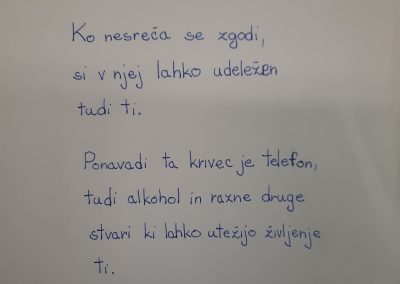 Ko nesreča se zgodi,
si v njej lahko udeležen
tudi ti.
Ponavadi ta krivec je telefon,
tudi alkohol in razne druge
stvari ki lahko utežijo življenje
ti.